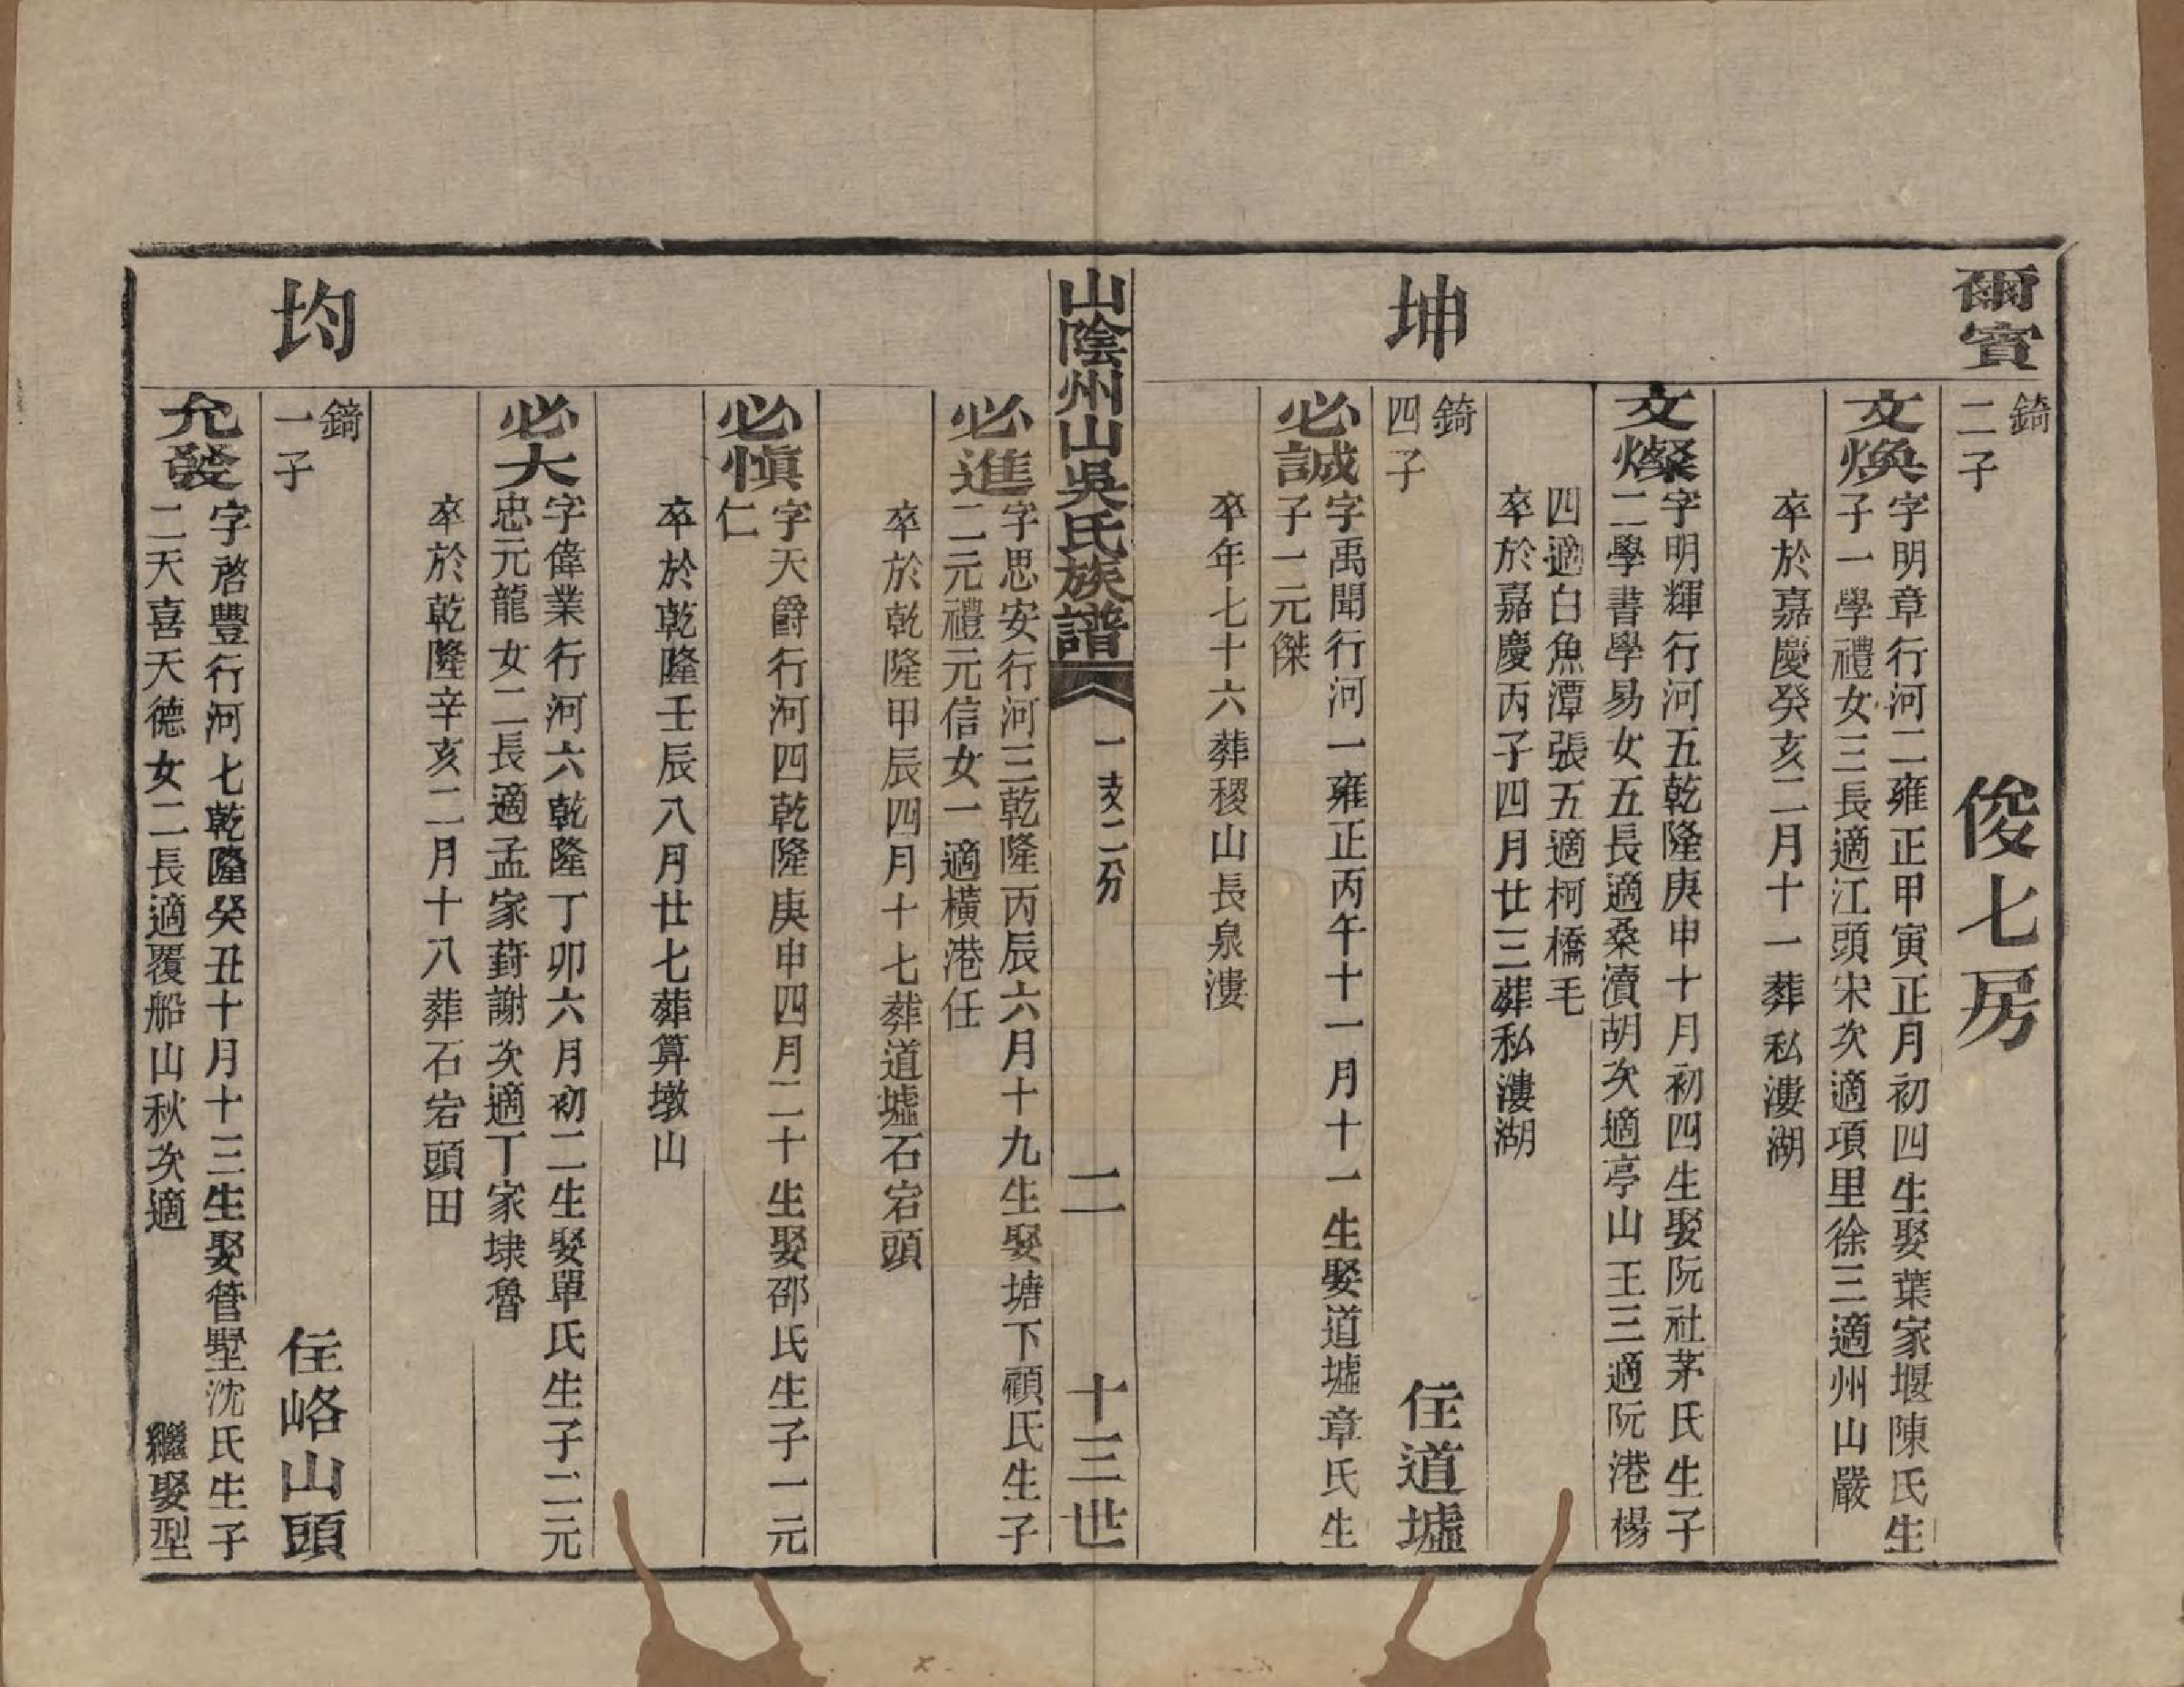 爾賓
錡
二子
俊七房
文煥
字明章行河二雍正甲寅正月初四生娶葉家堰陳氏生
子一學禮女三長適江頭宋次適項里徐三適州山嚴
卒於嘉慶癸亥二月十一葬私漊湖
文燦
字明輝行河五乾隆庚申十月初四生娶阮社茅氏生子
二學書學易女五長適桑瀆胡次適亭山王三適阮港楊
四適白魚潭張五適柯橋毛
卒於嘉慶丙子四月廿三葬私漊湖
坤
錡
四子
住道墟
必誠
字禹聞行河一雍正丙午十一月十一生娶道墟章氏生
子一元傑
卒年七十六葬稷山長泉漊
山陰州山吳氏族譜
一支二分
二
十三世
必進
字思安行河三乾隆丙辰六月十九生娶塘下顧氏生子
二元禮元信女一適橫港任
卒於乾隆甲辰四月十七葬道墟石宕頭
必慎
字天爵行河四乾隆庚申四月二十生娶邵氏生子一元
仁
卒於乾隆壬辰八月廿七葬算墩山
必大
字偉業行河六乾隆丁卯六月初二生娶單氏生子二元
忠元龍女二長適孟家葑謝次適丁家埭魯
卒於乾隆辛亥二月十八葬石宕頭田
均
錡
一子
住峈山頭
允發
字啓豐行河七乾隆癸丑十月十三生娶管墅沈氏生子
二天喜天德女二長適覆船山秋次適
繼娶型